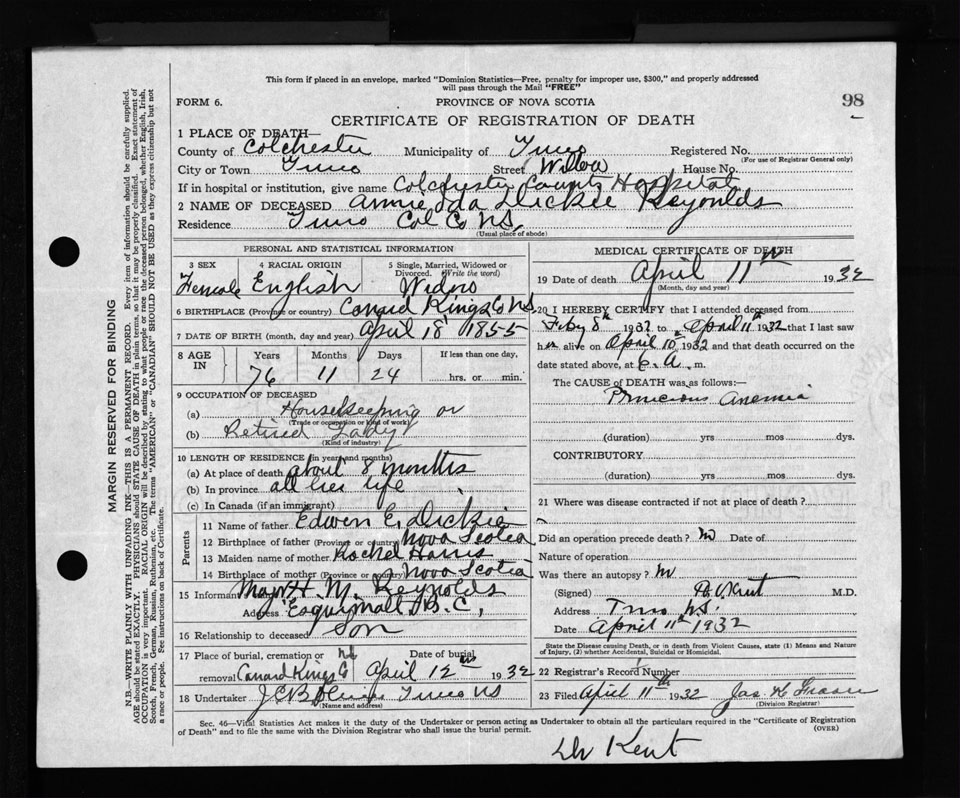 This form if placed in an envelope, marked "Dominion Statistics—Free, penalty for improper use, $300," and properly addressed
will pass through the Mail "FREE"
FORM 6.
PROVINCE OF NOVA SCOTIA
98
CERTIFICATE OF REGISTRATION OF DEATH
1 PLACE OF DEATH—
County of Colchester Municipality of Truro Registered No.
(For use of Registrar General only)
City or Town Truro Street Willow House No.
If in hospital or institution, give name Colchester County Hospital
2 NAME OF DECEASED Annie Ida Dickie Reynolds
Residence Truro Col Co NS.
(Usual place of abode)
PERSONAL AND STATISTICAL INFORMATION
3 SEX Female
4 RACIAL ORIGIN English
5 Single, Married, Widowed or Divorced. (Write the word) Widow
6 BIRTHPLACE (Province or country) Canard Kings Co NS
7 DATE OF BIRTH (month, day and year) April 18 1855
8 AGE IN Years 76 Months 11 Days 24 If less than one day, hrs. or min.
9 OCCUPATION OF DECEASED
(a) Housekeeping or
(Trade or occupation or kind of work)
(b) Retired Lady
(Kind of industry)
10 LENGTH OF RESIDENCE (in years and months)
(a) At place of death about 8 months
(b) In province all her life
(c) In Canada (if an immigrant)
Parents
11 Name of father Edwin E. Dickie
12 Birthplace of father (Province or country) Nova Scotia
13 Maiden name of mother Rachel Harris
14 Birthplace of mother (Province or country) Nova Scotia
15 Informant Major H. M. Reynolds
Address Esquimalt B.C,
16 Relationship to deceased Son
17 Place of burial, cremation or removal Canard Kings Co
Date of burial April 12 1932
18 Undertaker Truro NS
(Name and address)
MEDICAL CERTIFICATE OF DEATH
19 Date of death April 11th 1932
(Month, day and year)
20 I HEREBY CERTIFY that I attended deceased from
Feby 8th 1932 to April 11th 1932 that I last saw
her alive on April 10th 1932 and that death occurred on the
date stated above, at 6 A. m.
The CAUSE OF DEATH was as follows:—
Pernicious Anemia
(duration) yrs mos dys.
CONTRIBUTORY
(duration) yrs mos dys.
21 Where was disease contracted if not at place of death?
Did an operation precede death? no Date of
Nature of operation
Was there an autopsy? no
(Signed) Kent M.D.
Address Truro NS.
Date April 11th 1932
State the Disease causing Death, or in death from Violent Causes, state (1) Means and
Nature of Injury, (2) whether Accidental, Suicidal or Homicidal.
22 Registrar's Record Number
23 Filed April 11th 1932 Jas H Fraser
(Division Registrar)
Sec. 46—Vital Statistics Act makes it the duty of the Undertaker or person acting as Undertaker to obtain all the particulars required in the "Certificate of Registration
of Death" and to file the same with the Division Registrar who shall issue the burial permit.
(OVER)
Dr Kent
MARGIN RESERVED FOR BINDING
N.B.—WRITE PLAINLY WITH UNFADING INK—THIS IS A PERMANENT RECORD. Every item of information should be carefully supplied.
AGE should be stated EXACTLY. PHYSICIANS should STATE CAUSE OF DEATH in plain terms, so that it may be properly classified. Exact statement of
OCCUPATION is very important. RACIAL ORIGIN will be described by stating to what people or race the deceased person belonged, whether English, Irish,
Scotch, French, German, Russian, Ruthenian, etc. The terms "AMERICAN" or "CANADIAN" SHOULD NOT BE USED as they express citizenship but not
a race or people. See instructions on back of Certificate.